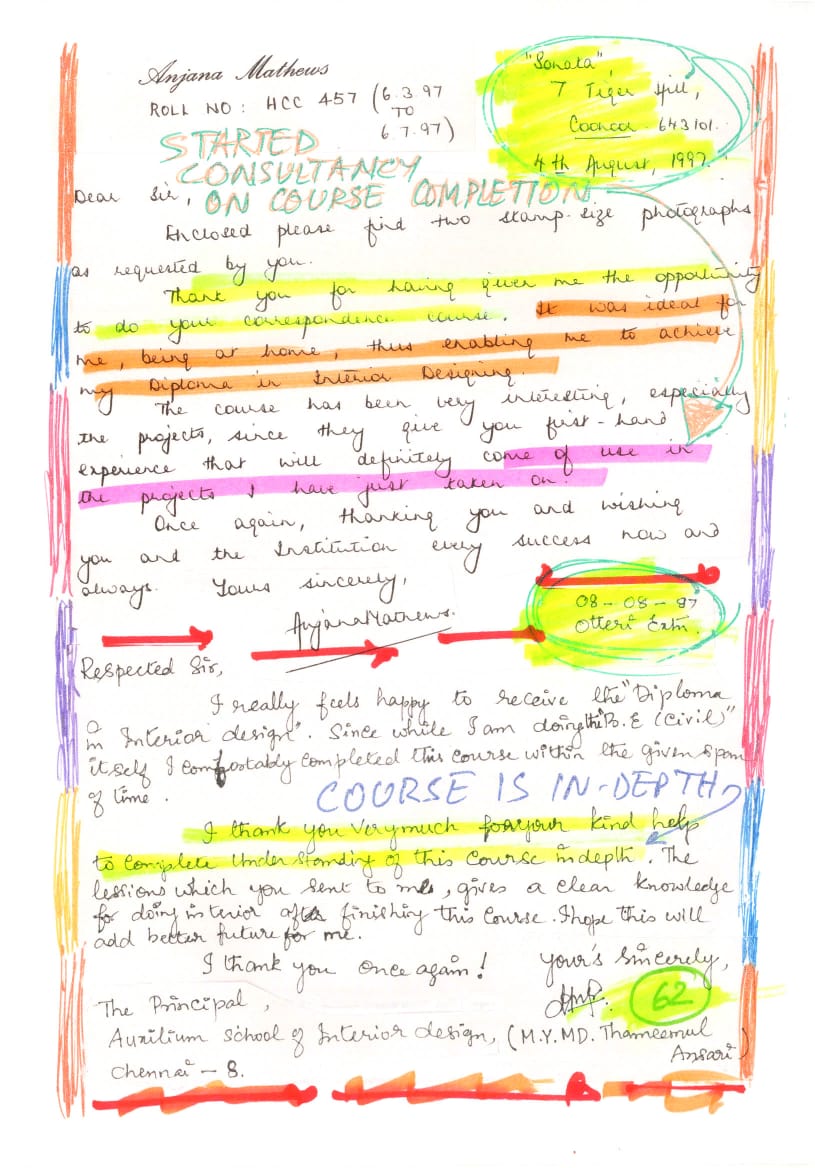 Anjana Mathews
ROLL NO: HCC 457 (6.3.97
TO
6.7.97)
"Sonata",
7 Tiger Hill,
Coonoor 643101.
4th August, 1997.
STARTED
CONSULTANCY
ON COURSE COMPLETION
Dear Sir,
Enclosed please find two stamp-size photographs
as requested by you.
Thank you for having given me the opportunity
to do your correspondence course. It was ideal for
me, being at home, thus enabling me to achieve
my Diploma in Interior Designing.
The course has been very interesting, especially
the projects, since they give you first-hand
experience that will definitely come of use in
the projects I have just taken on.
Once again, thanking you and wishing
you and the Institution every success now and
always. Yours sincerely,
Anjana Mathews.
08-08-97
Otteri Extn.
Respected Sir,
I really feels happy to receive the "Diploma
in Interior design". Since while I am doing the "B.E (Civil)"
itself I comfortably completed this course within the given span
of time.
COURSE IS IN-DEPTH
I thank you very much for your kind help
to complete understanding of this course indepth. The
lessions which you sent to me, gives a clear knowledge
for doing interior after finishing this course. I hope this will
add better future for me.
I thank you once again! Your's sincerely,
62
The Principal,
Auxilium School of Interior design, (M.Y.MD. Thameemul
Ansari)
Chennai - 8.